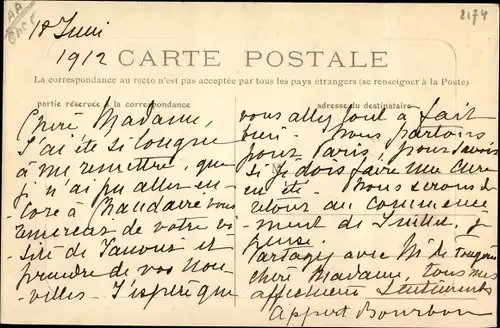 18 Juin
1912
CARTE POSTALE
La correspondance au recto n'est pas acceptée par tous les pays étrangers (se renseigner à la Poste)
partie réservée à la correspondance
adresse du destinataire
Chère Madame,
J'ai été si longue
à me remettre, que
je n'ai pu aller en-
-core à vous
remercier de votre vi
site de et
prendre de vos nou-
-velles - J'espère que
vous allez tout à fait
bien - Nous partons
pour Paris, pour savoir
si je dois faire une cure
en été. Nous serons de
retour au commence
-ment de Juillet, je
pense.
Partagez avec Mr de
chère Madame, tous mes
affectueux sentiments
Appert Bourbon
2174